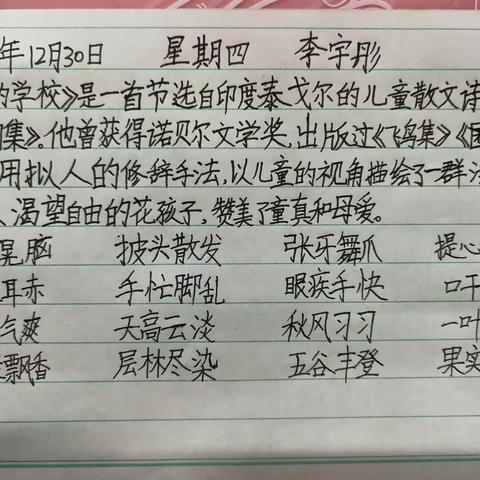 年12月30日 星期四 李宇彤
学校》是一首节选自印度泰戈尔的儿童散文诗
集》。他曾获得诺贝尔文学奖,出版过《飞鸟集》《
用拟人的修辞手法,以儿童的视角描绘了一群
、渴望自由的花孩子,赞美了童真和母爱。
晃脑 披头散发 张牙舞爪 提心
耳赤 手忙脚乱 眼疾手快 口干
气爽 天高云淡 秋风习习 一叶
飘香 层林尽染 五谷丰登 果实